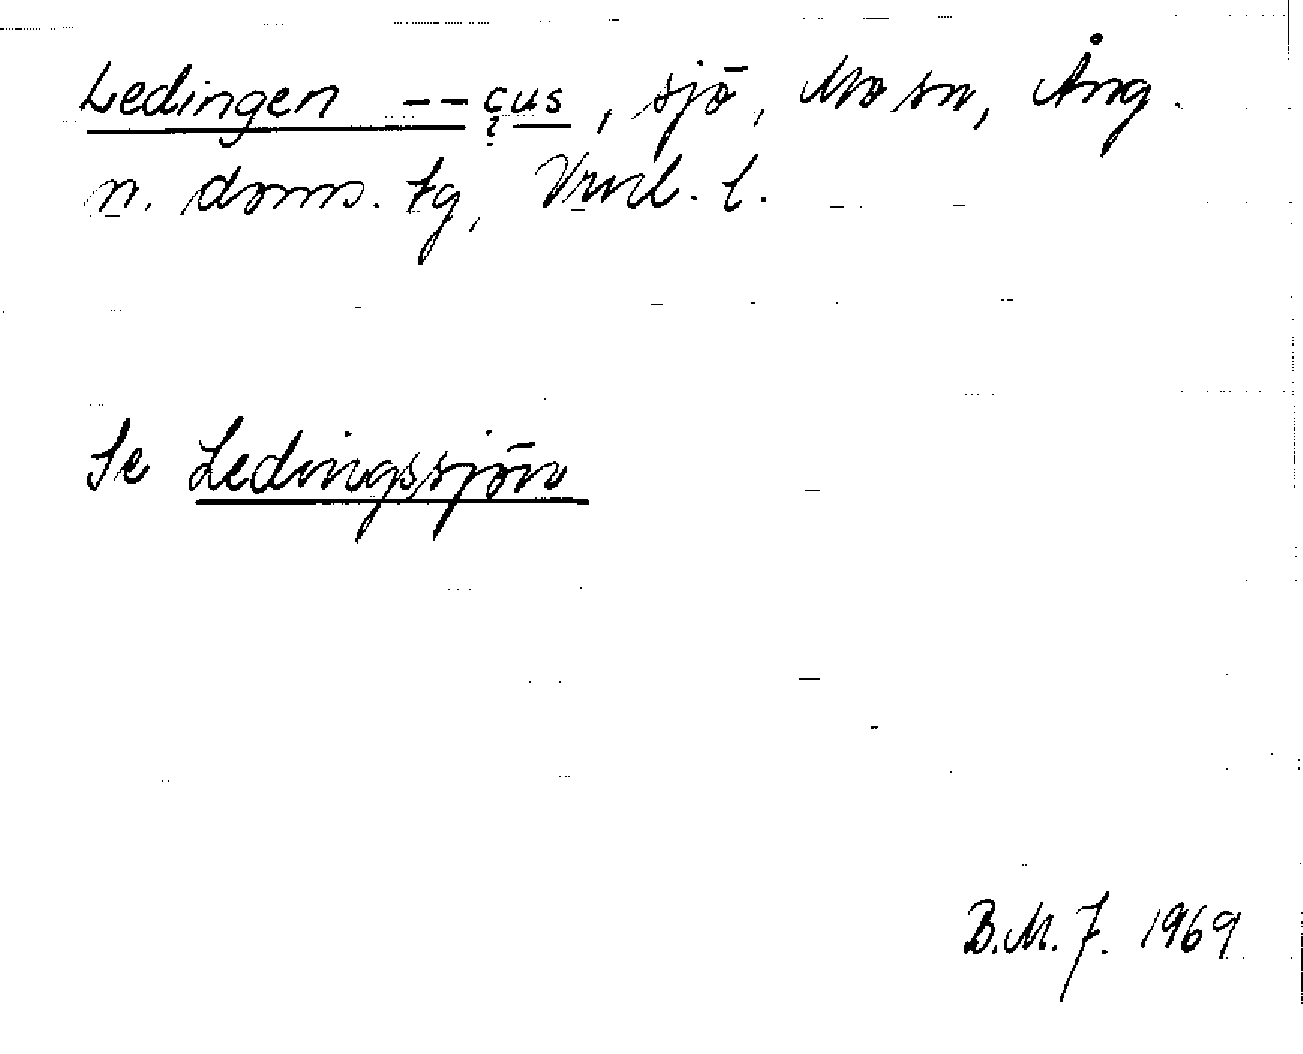 Ledingen --çus, sjö, Mo sn, Ång.
n. doms. tg, Vrml. l.
Se Ledingssjön
B.M.J. 1969